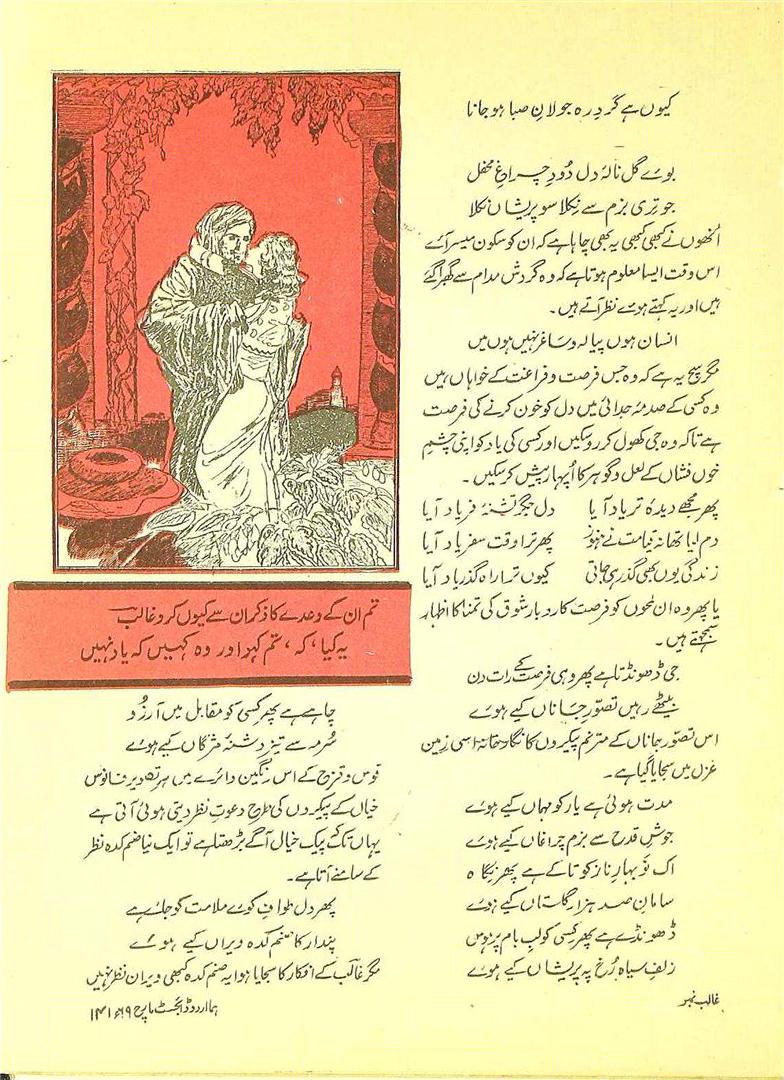 کیوں ہے گردِ رہ جولانِ صبا ہو جانا
بوئے گل نالۂ دل دُودِ چراغِ محفل
جو تری بزم سے نکلا سو پریشاں نکلا
اُنھوں نے کبھی کبھی یہ بھی چاہا ہے کہ ان کو سکون میسر آئے
اس وقت ایسا معلوم ہوتا ہے کہ وہ گردش مدام سے گھبرا گئے
ہیں اور یہ کہتے ہوئے نظر آتے ہیں۔
انسان ہوں پیالہ و ساغر نہیں ہوں میں
مگر سچ یہ ہے کہ وہ جس فرصت و فراغت کے خواہاں ہیں
وہ کسی کے صدمۂ جدائی میں دل کو خون کرنے کی فرصت
ہے تاکہ وہ جی کھول کر رو سکیں اور کسی کی یاد کو اپنی چشمِ
خوں فشاں کے لعل و گوہر کا اُپہار پیش کر سکیں۔
پھر مجھے دیدۂ تر یاد آیا دل جگر تشنۂ فریاد آیا
دم لیا تھا نہ قیامت نے ہنوز پھر ترا وقت سفر یاد آیا
زندگی یوں بھی گذر ہی جاتی کیوں ترا راہ گذر یاد آیا
یا پھر وہ ان لمحوں کو فرصت کاروبار شوق کی تمنا کا اظہار
سمجھتے ہیں۔
جی ڈھونڈتا ہے پھر وہی فرصت کے رات دن
بیٹھے رہیں تصوّرِ جاناں کیے ہوئے
اس تصورِ جاناں کے مترنم پیکروں کا نگار خانہ اسی زمین
غزل میں سجایا گیا ہے۔
مدت ہوئی ہے یار کو مہماں کیے ہوئے
جوشِ قدح سے بزم چراغاں کیے ہوئے
اک نَو بہارِ ناز کو تاکے ہے پھر نگاہ
سامانِ صد ہزار گلستاں کیے ہوئے
ڈھونڈے ہے پھر کسی کو لبِ بام پر ہوس
زلفِ سیاہ رُخ پہ پریشاں کیے ہوئے
تم ان کے وعدے کا ذکر ان سے کیوں کرو غالب
یہ کیا، کہ، تم کہو اور وہ کہیں کہ یاد نہیں
چاہے ہے پھر کسی کو مقابل میں آرزُو
سُرمہ سے تیز دشنۂ مژگاں کیے ہوئے
قوس و قزح کے اس رنگین دائرے میں ہر تصویر فانوس
خیال کے پیکروں کی طرح دعوتِ نظر دیتی ہوئی آتی ہے
یہاں تک کہ پیک خیال آگے بڑھتا ہے تو ایک نیا صنم کدہ نظر
کے سامنے آتا ہے۔
پھر دل طوافِ کوئے ملامت کو جائے ہے
پندار کا صنم کدہ ویراں کیے ہوئے
مگر غالب کے افکار کا سجایا ہوا یہ صنم کدہ کبھی ویران نظر نہیں
غالب نمبر
ہما اردو ڈائجسٹ مارچ ۶۹ء ۱۴۱